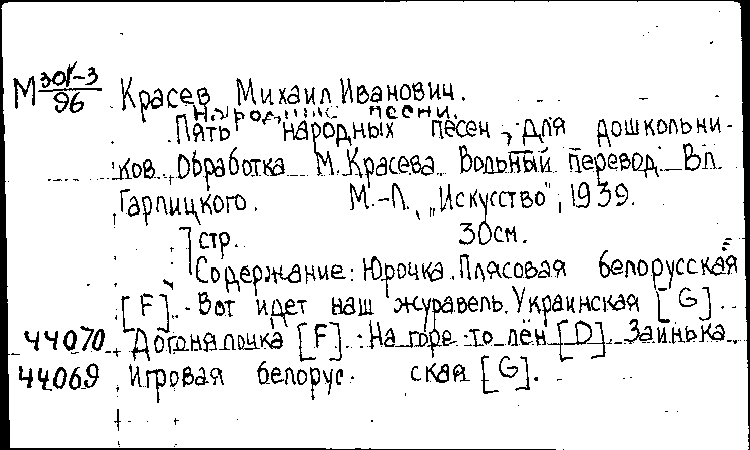 М 301-3/96 Красев Михаил Иванович.
Народные песни.
Пять народных песен, для дошкольни-
ков. Обработка М. Красева. Вольный перевод Вл.
Гарлицкого. М.-Л., „Искусство", 1939.
7 стр. 30см.
Содержание: Юрочка. Плясовая белорусская
[F]. Вот идет наш журавель. Украинская [G].
44070 Догонялочка [F]. На горе-то лён [D]. Заинька
44069 Игровая белорус- ская [G].